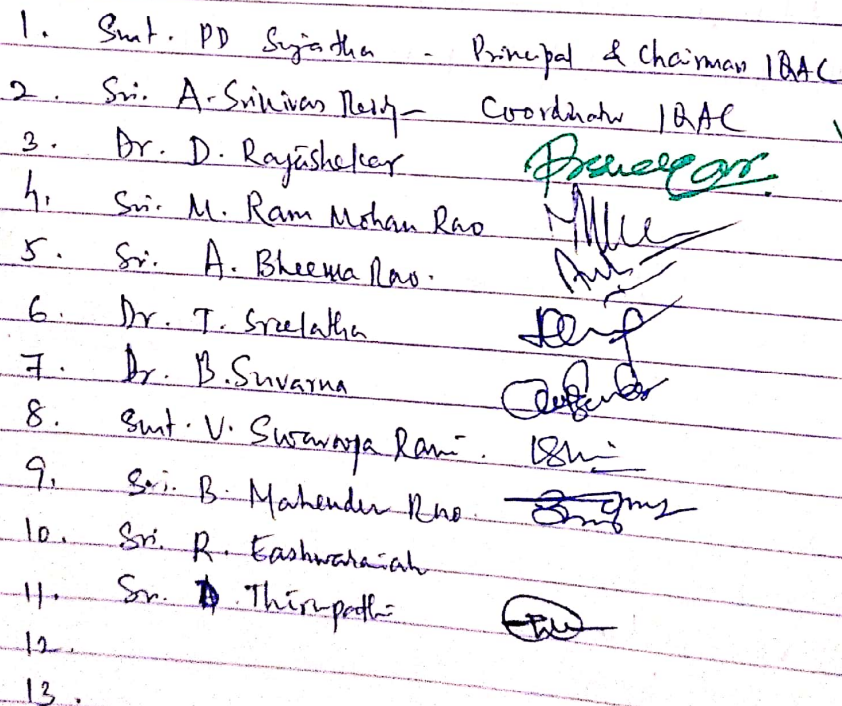 1. Smt. PD Sujatha - Principal & Chairman IQAC
2. Sri. A. Srinivas Reddy - Coordinator IQAC
3. Dr. D. Rajashekar
4. Sri. M. Ram Mohan Rao
5. Sri. A. Bheema Rao.
6. Dr. T. Sreelatha
7. Dr. B. Suvarna
8. Smt. V. Swaroopa Rani.
9. Sri. B. Mahender Rao.
10. Sri. R. Eashwaraiah
11. Sri. D. Thirupathi
12.
13.